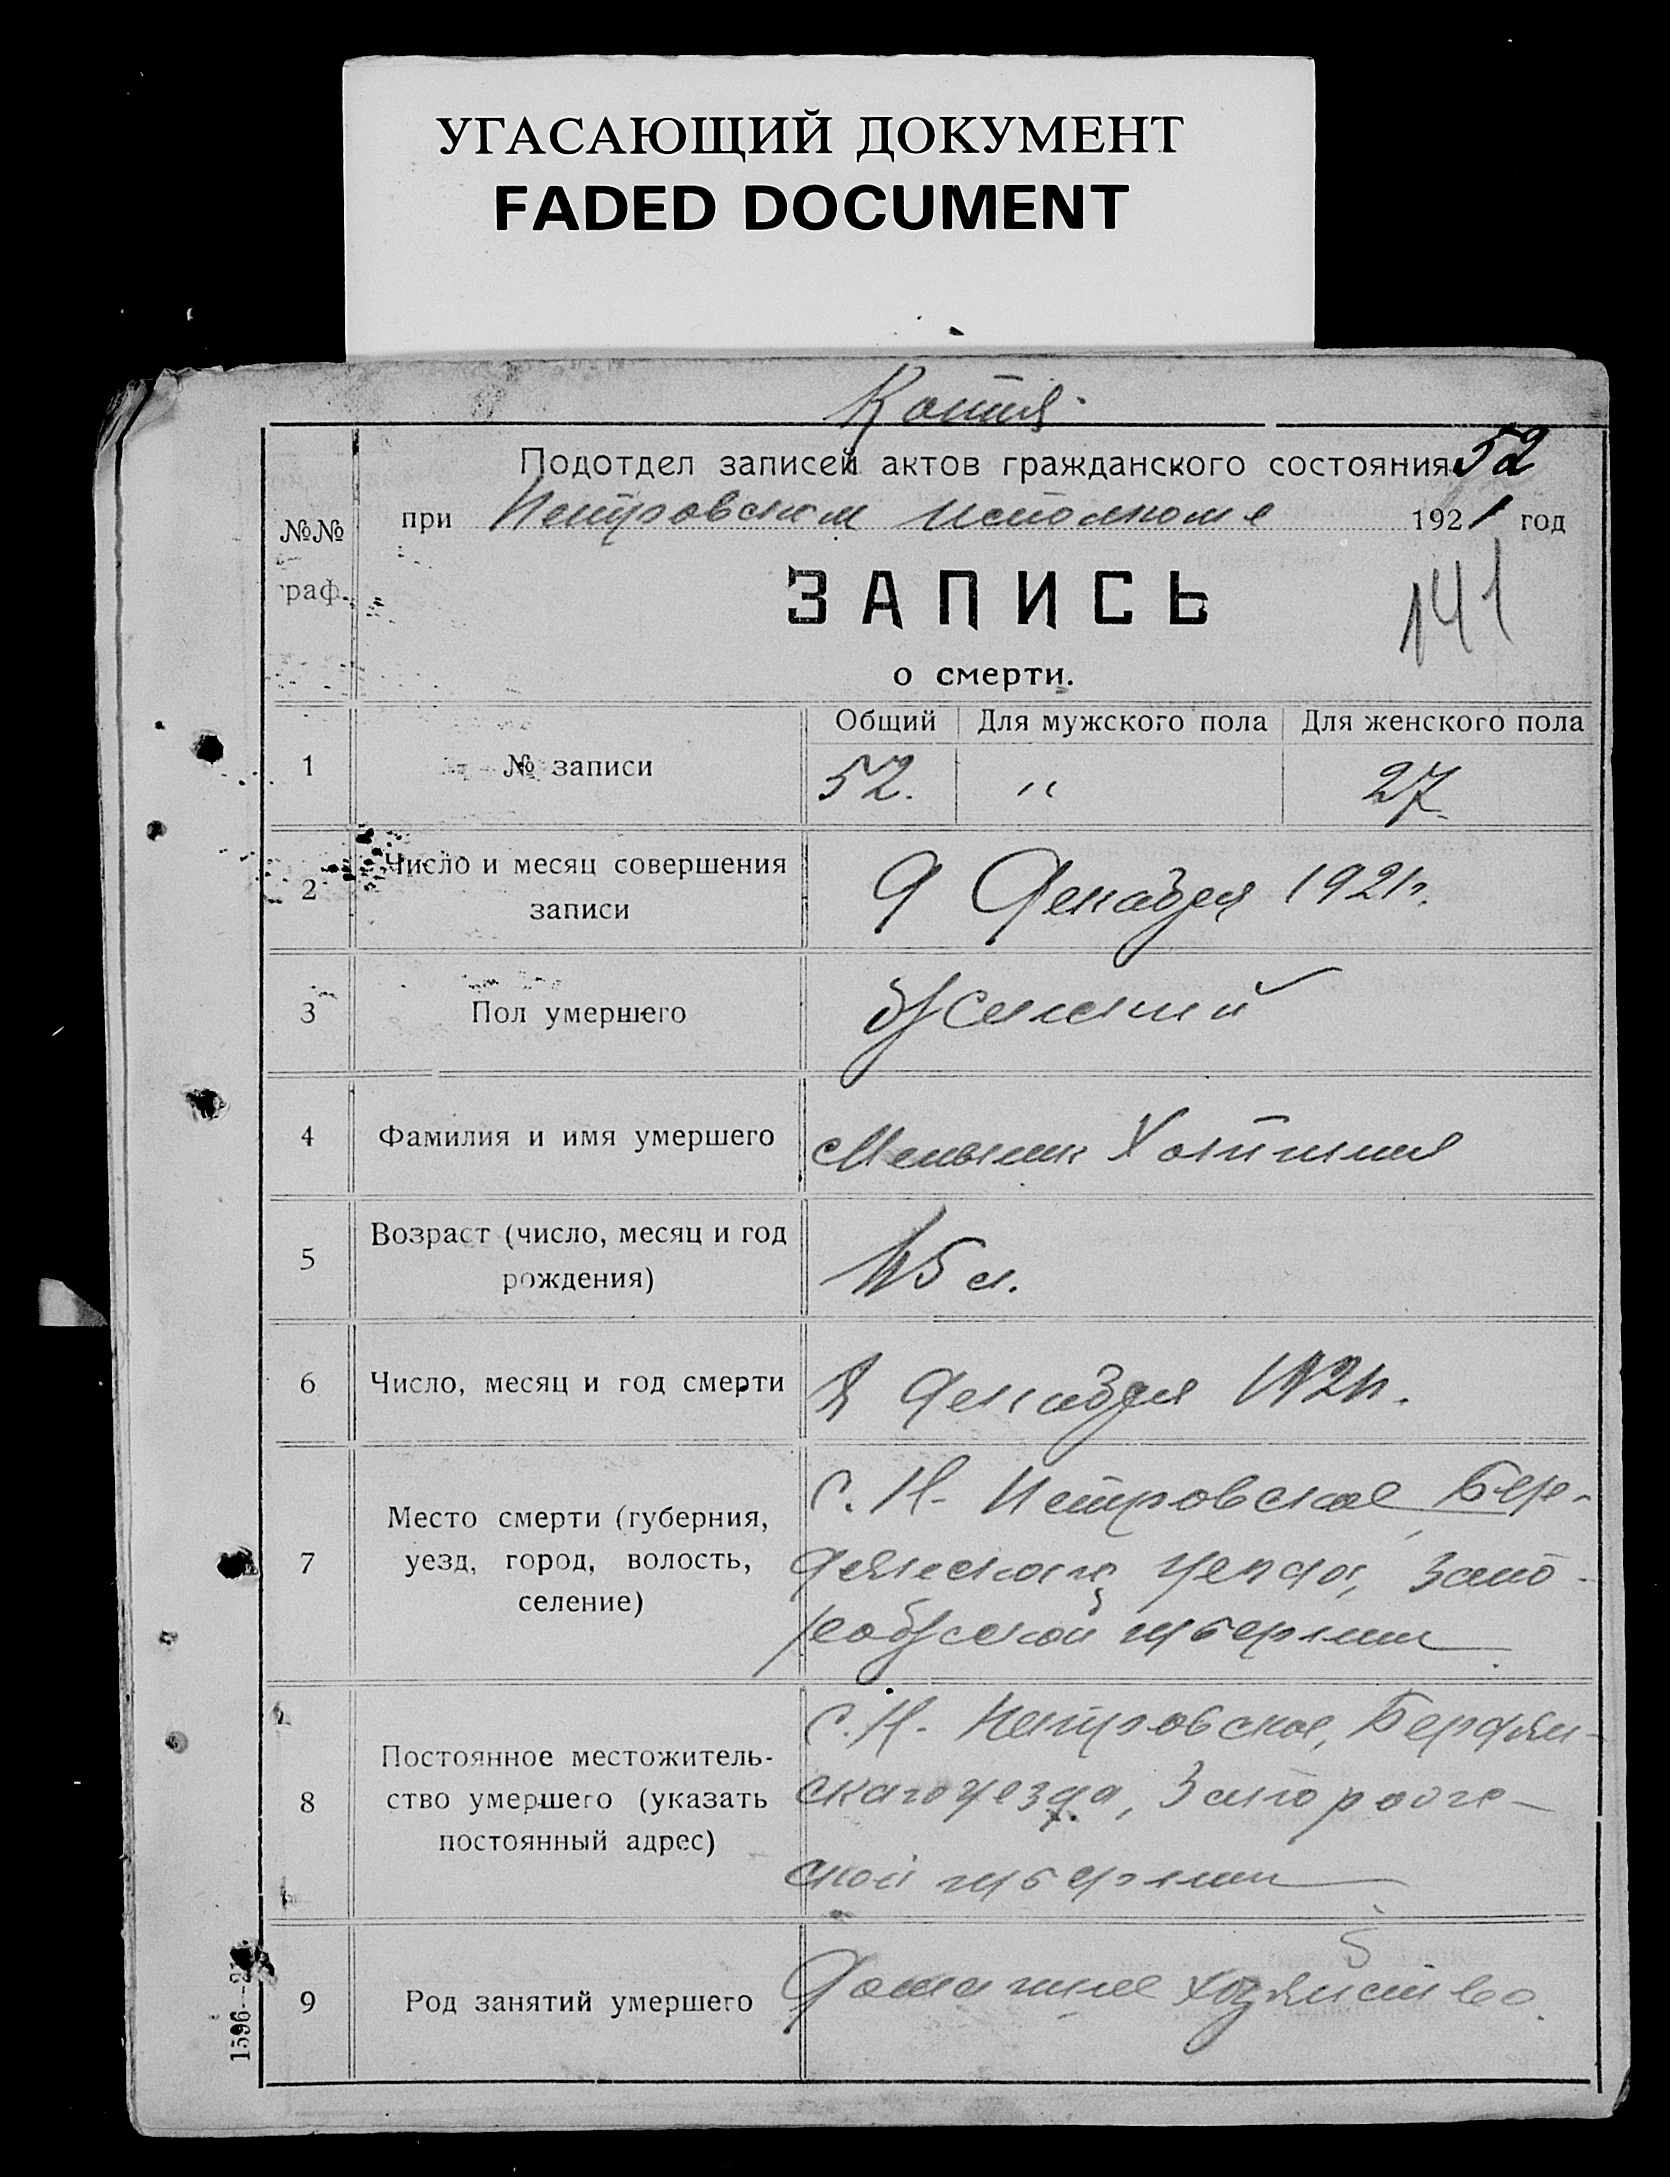 УГАСАЮЩИЙ ДОКУМЕНТ
FADED DOCUMENT
Копия
Подотдел записей актов гражданского состояния 52
при Петровском исполкоме 1921 год
№№
граф.
141
ЗАПИСЬ
о смерти.
Общий Для мужского пола Для женского пола
1 № записи 52. " 27
2 Число и месяц совершения
записи
9 Декабря 1921 г.
3 Пол умершего Женский
4 Фамилия и имя умершего
5 Возраст (число, месяц и год
рождения)
45 л.
6 Число, месяц и год смерти Декабря 1921 г.
7 Место смерти (губерния,
уезд, город, волость,
селение)
С. Н. Петровское Бер-
дянского уезда, Запо-
рожской губернии
8 Постоянное местожитель-
ство умершего (указать
постоянный адрес)
С. Н. Петровское, Бердян-
скаго уезда, Запороже-
ской губернии
9 Род занятий умершего Домашнее хозяйство.
1596—21